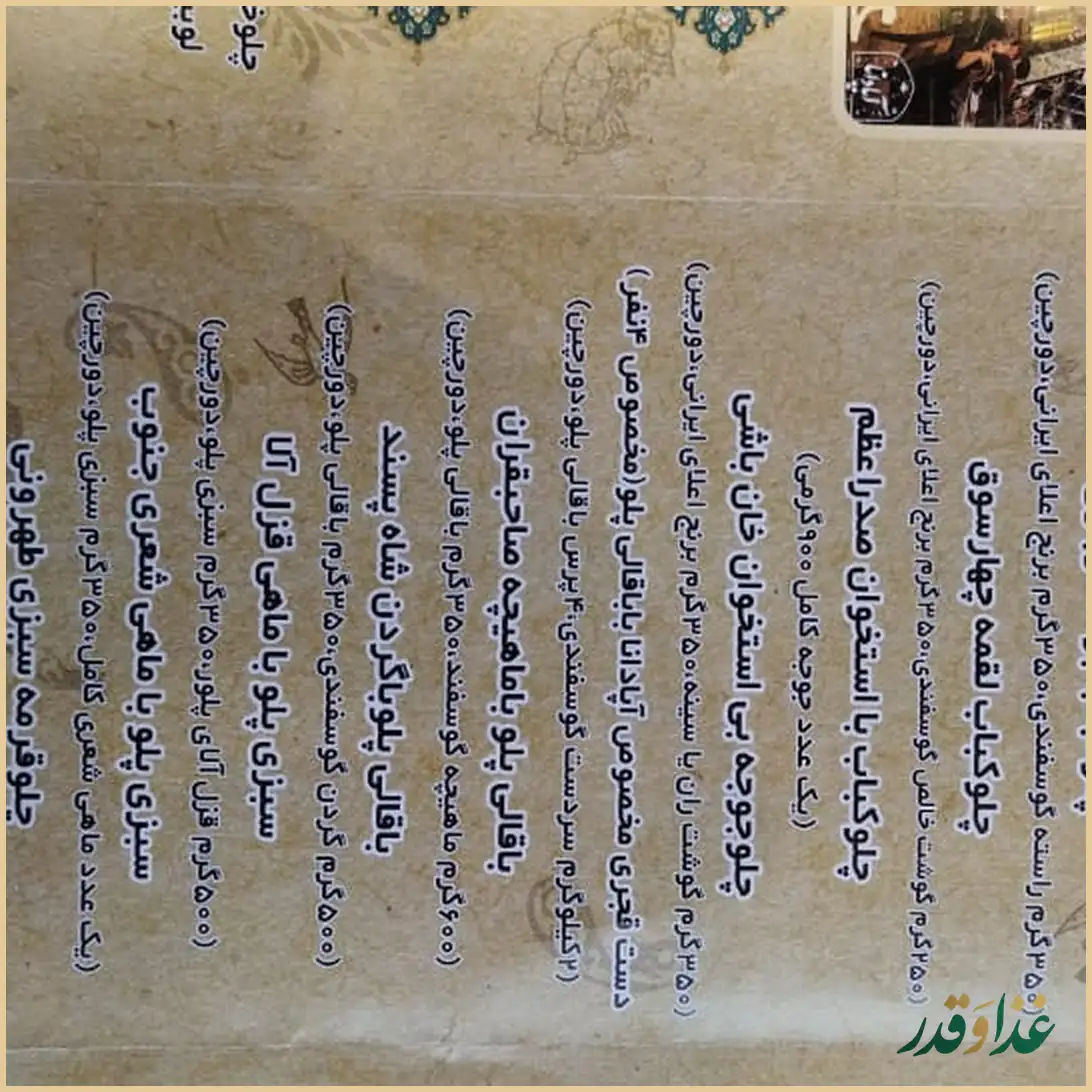 (۳۵۰گرم راسته گوسفندی،۳۵۰گرم برنج اعلای ایرانی،دورچین)
چلوکباب لقمه چهارسوق
(۲۵۰گرم گوشت خالص گوسفندی،۳۵۰گرم برنج اعلای ایرانی،دورچین)
چلوکباب با استخوان صدراعظم
(یک عدد جوجه کامل ۹۰۰گرمی)
چلوجوجه بی استخوان خان باشی
(۳۵۰گرم گوشت ران یا سینه،۳۵۰گرم برنج اعلای ایرانی،دورچین)
دست قجری مخصوص آپادانا باباقالی پلو(مخصوص ۴نفر)
(۲کیلوگرم سردست گوسفندی،۴پرس باقالی پلو،دورچین)
باقالی پلو باماهیچه صاحبقران
(۶۰۰گرم ماهیچه گوسفند،۳۵۰گرم باقالی پلو،دورچین)
باقالی پلوباگردن شاه پسند
(۵۰۰گرم گردن گوسفندی،۳۵۰گرم باقالی پلو،دورچین)
سبزی پلو با ماهی قزل آلا
(۵۰۰گرم قزل آلای پلور،۳۵۰گرم سبزی پلو،دورچین)
سبزی پلو با ماهی شعری جنوب
(یک عدد ماهی شعری کامل،۳۵۰گرم سبزی پلو،دورچین)
چلوقرمه سبزی طهرونی
غذا و قدر